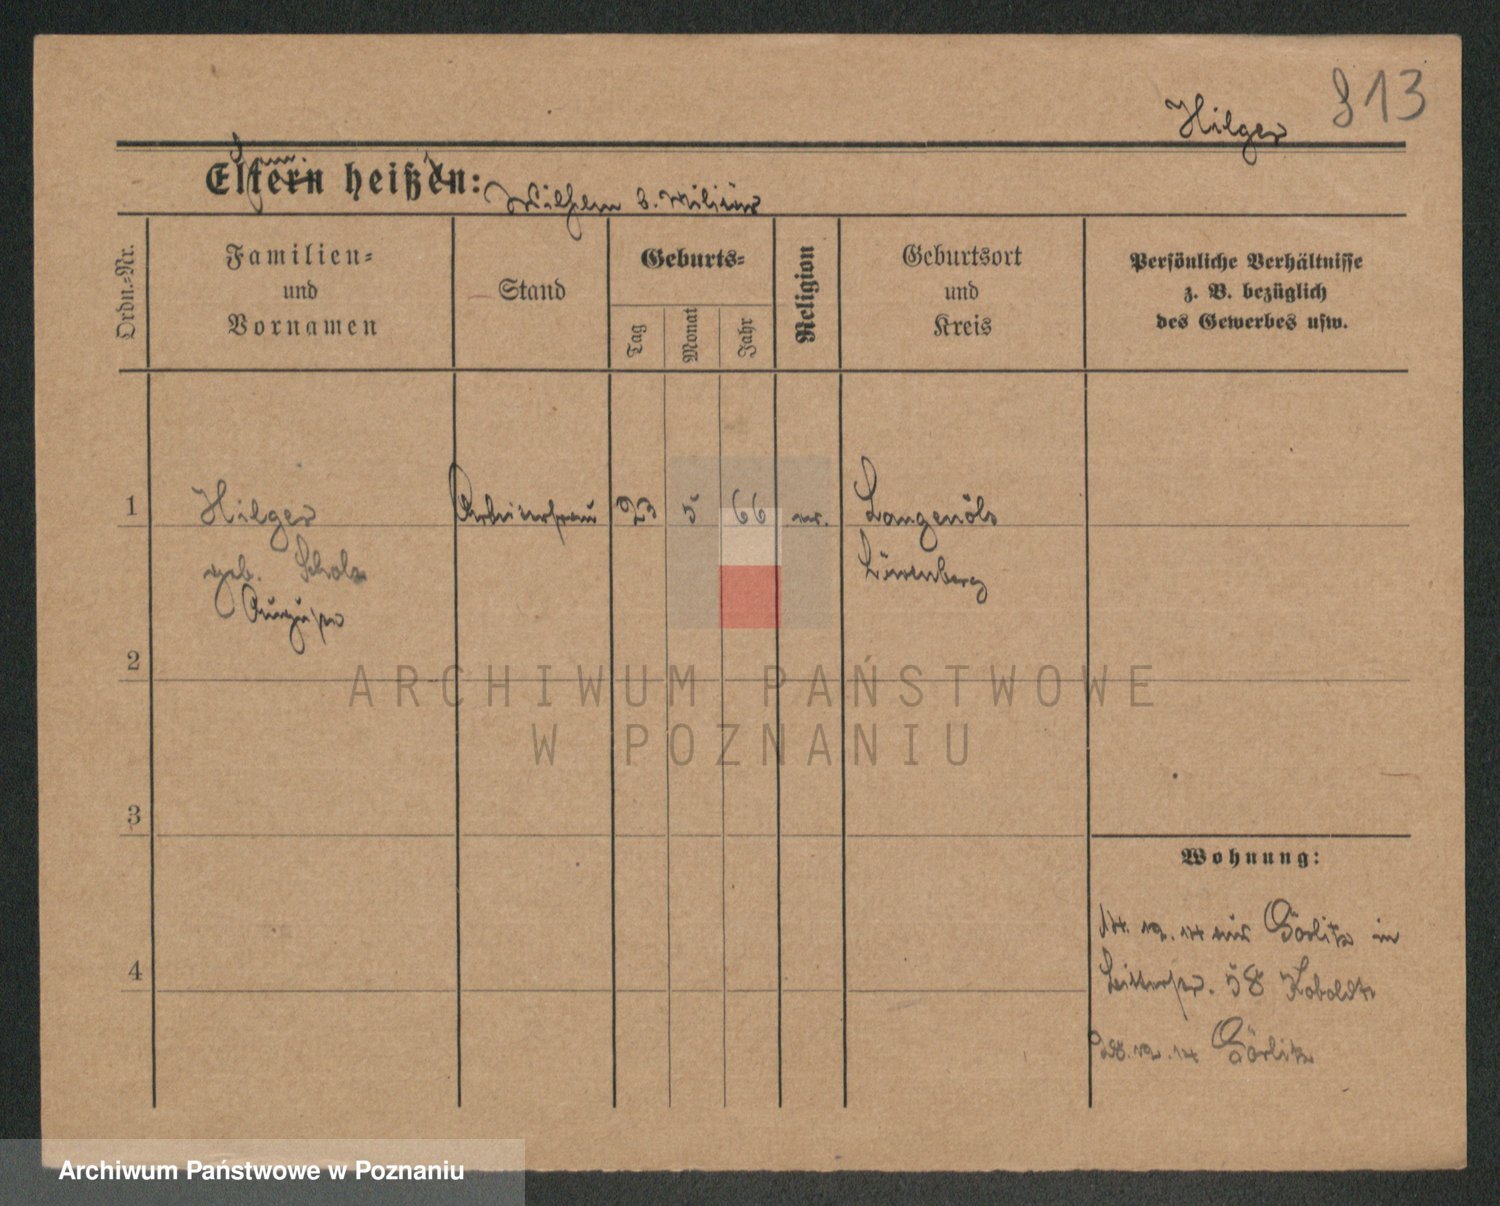 Hilger 813
Eltern heißen: Wilhelm b. Militär
Ordn.-Nr.
Familien-
und
Vornamen
Stand
Geburts-
Tag
Monat
Jahr
Religion
Geburtsort
und
Kreis
Persönliche Verhältnisse
z. B. bezüglich
des Gewerbes usw.
1 Hilger Arbeiterfrau 23 5 66 ev. Langenöls
geb. Scholz Löwenberg
Auguste
2
ARCHIWUM PAŃSTWOWE
W POZNANIU
3
Wohnung:
14. 12. 14 aus Görlitz in
58 Koboldt
28. 12. 14 Görlitz
4
Archiwum Państwowe w Poznaniu